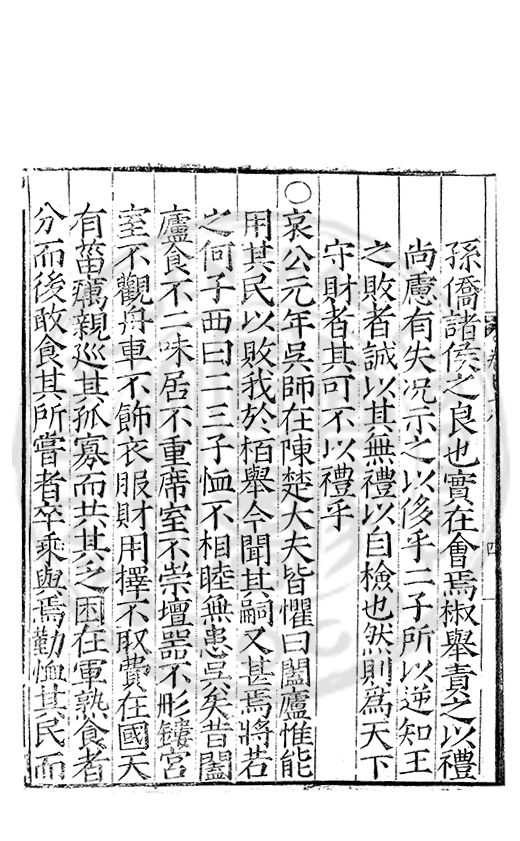 孫僑諸侯之良也實在會焉椒舉責之以禮
尚慮有失况示之以侈乎二子所以逆知王
之敗者誠以其無禮以自檢也然則為天下
守財者其可不以禮乎
○哀公元年吳師在陳楚大夫皆懼曰闔廬惟能
用其民以敗我於栢舉今聞其嗣又甚焉將若
之何子西曰二三子恤不相睦無患吳矣昔闔
廬食不二味居不重席室不崇壇器不彤鏤宮
室不觀舟車不飾衣服財用擇不取費在國天
有菑癘親巡其孤寡而共其乏困在軍熟食者
分而後敢食其所嘗者卒乘與焉勤恤其民而